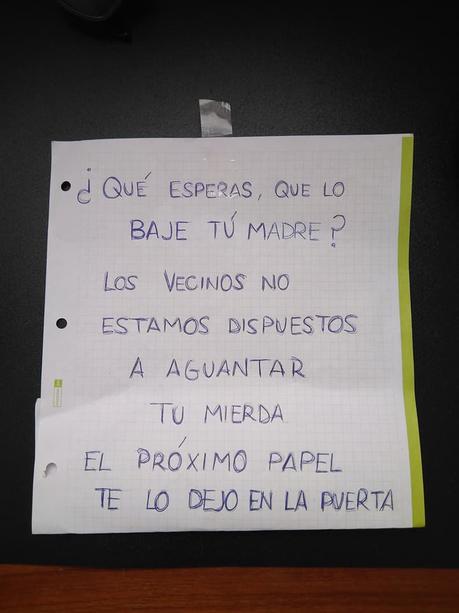 ¿QUÉ ESPERAS, QUE LO
BAJE TÚ MADRE?
LOS VECINOS NO
ESTAMOS DISPUESTOS
A AGUANTAR
TU MIERDA
EL PRÓXIMO PAPEL
TE LO DEJO EN LA PUERTA